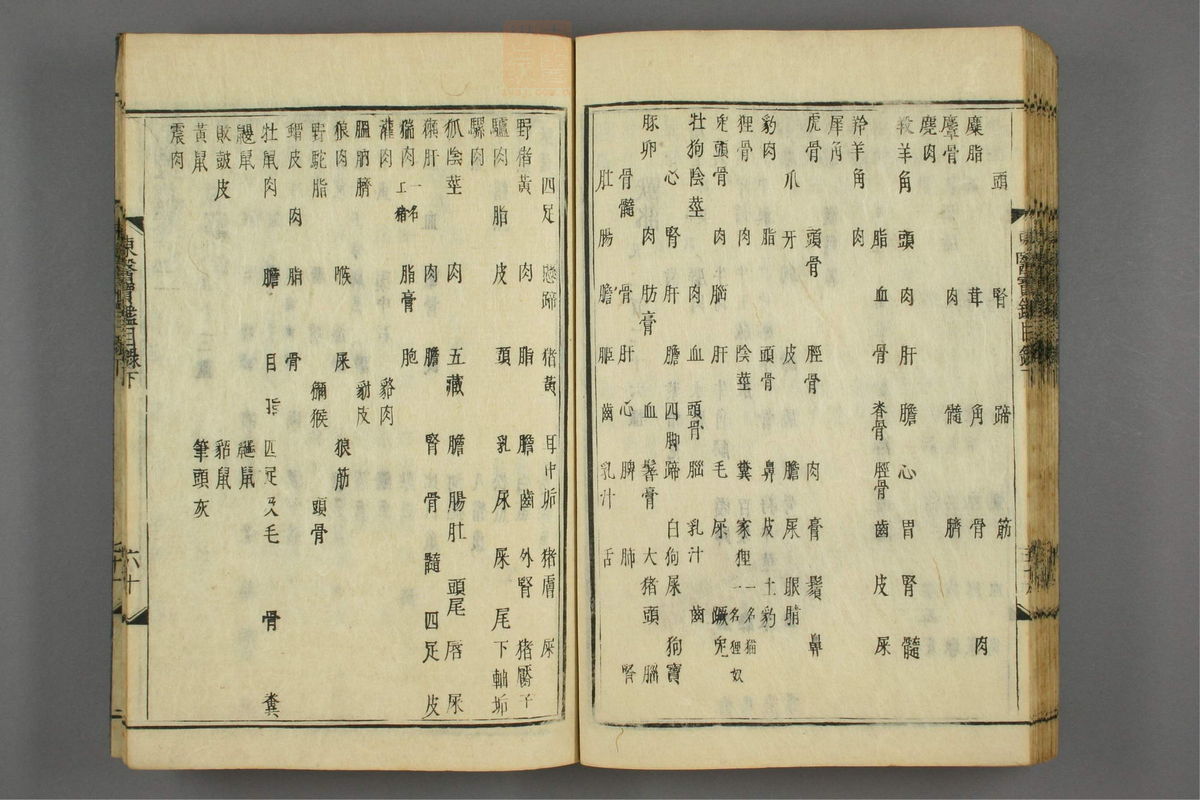 頭 腎 蹄 筋
麋脂 茸 角 骨 肉
麞骨 肉 髓 臍
麂肉
羖羊角 頭 肉 肝 膽 心 胃 腎 髓
脂 血 骨 脊骨 脛骨 齒 皮 屎
羚羊角 肉
犀角
虎骨 頭骨 脛骨 肉 膏 鬚 鼻
爪 牙 皮 膽 屎 眼睛
豹肉 脂 頭骨 鼻 皮 土豹
狸骨 肉 陰莖 糞 家狸 一名猫 一名狸奴
兎頭骨 肉 腦 肝 毛 屎
牡狗陰莖 肉 血 頭骨 腦 乳汁 齒
心 腎 肝 膽 四脚蹄 白狗屎 狗寶
豚卵 肉 肪膏 血 䐗膏 大猪頭 腦
骨髓 骨 肝 心 脾 肺 腎
肚 腸 膽 齒 乳汁 舌
四足 懸蹄 猪黃 耳中垢 猪膚 屎
野猪黃 肉 脂 膽 齒 外腎
驢肉 脂 皮 頭 乳 尿 屎 尾下軸垢
騾肉
狐陰莖 肉 五藏 膽 腸肚 頭尾 唇 屎
獺肝 肉 膽 腎 骨 髓 四足 皮
猯肉 脂膏 胞
豯肉
膃肭臍 豽皮
狼肉 喉 屎 狼筋
野駝脂 獼猴 頭骨
蝟皮 肉 脂 骨
牡鼠肉 膽 目 脂 四足及毛 骨 糞
鼴鼠
敗鼓皮 貂鼠
黃鼠 筆頭灰
震肉
東醫寶鑑目錄下
六十